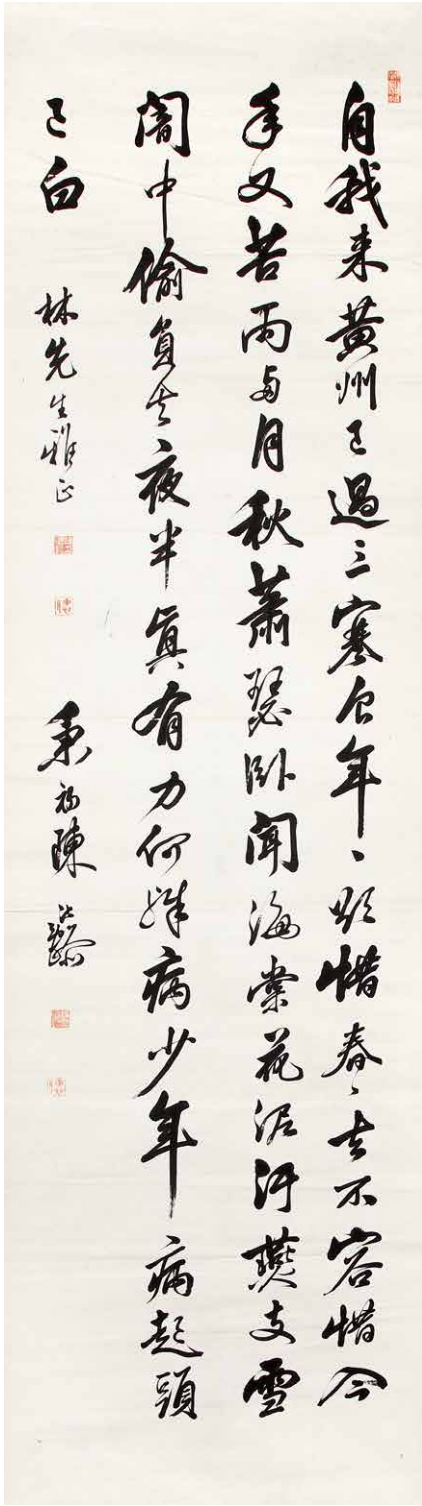 自我来黄州已過三寒食年、欲惜春、去不容惜今
年又苦雨兩月秋蕭瑟卧聞海棠花泥汙燕支雪
闇中偷負去夜半眞有力何殊病少年病起頭
已白 林先生雅正 陳